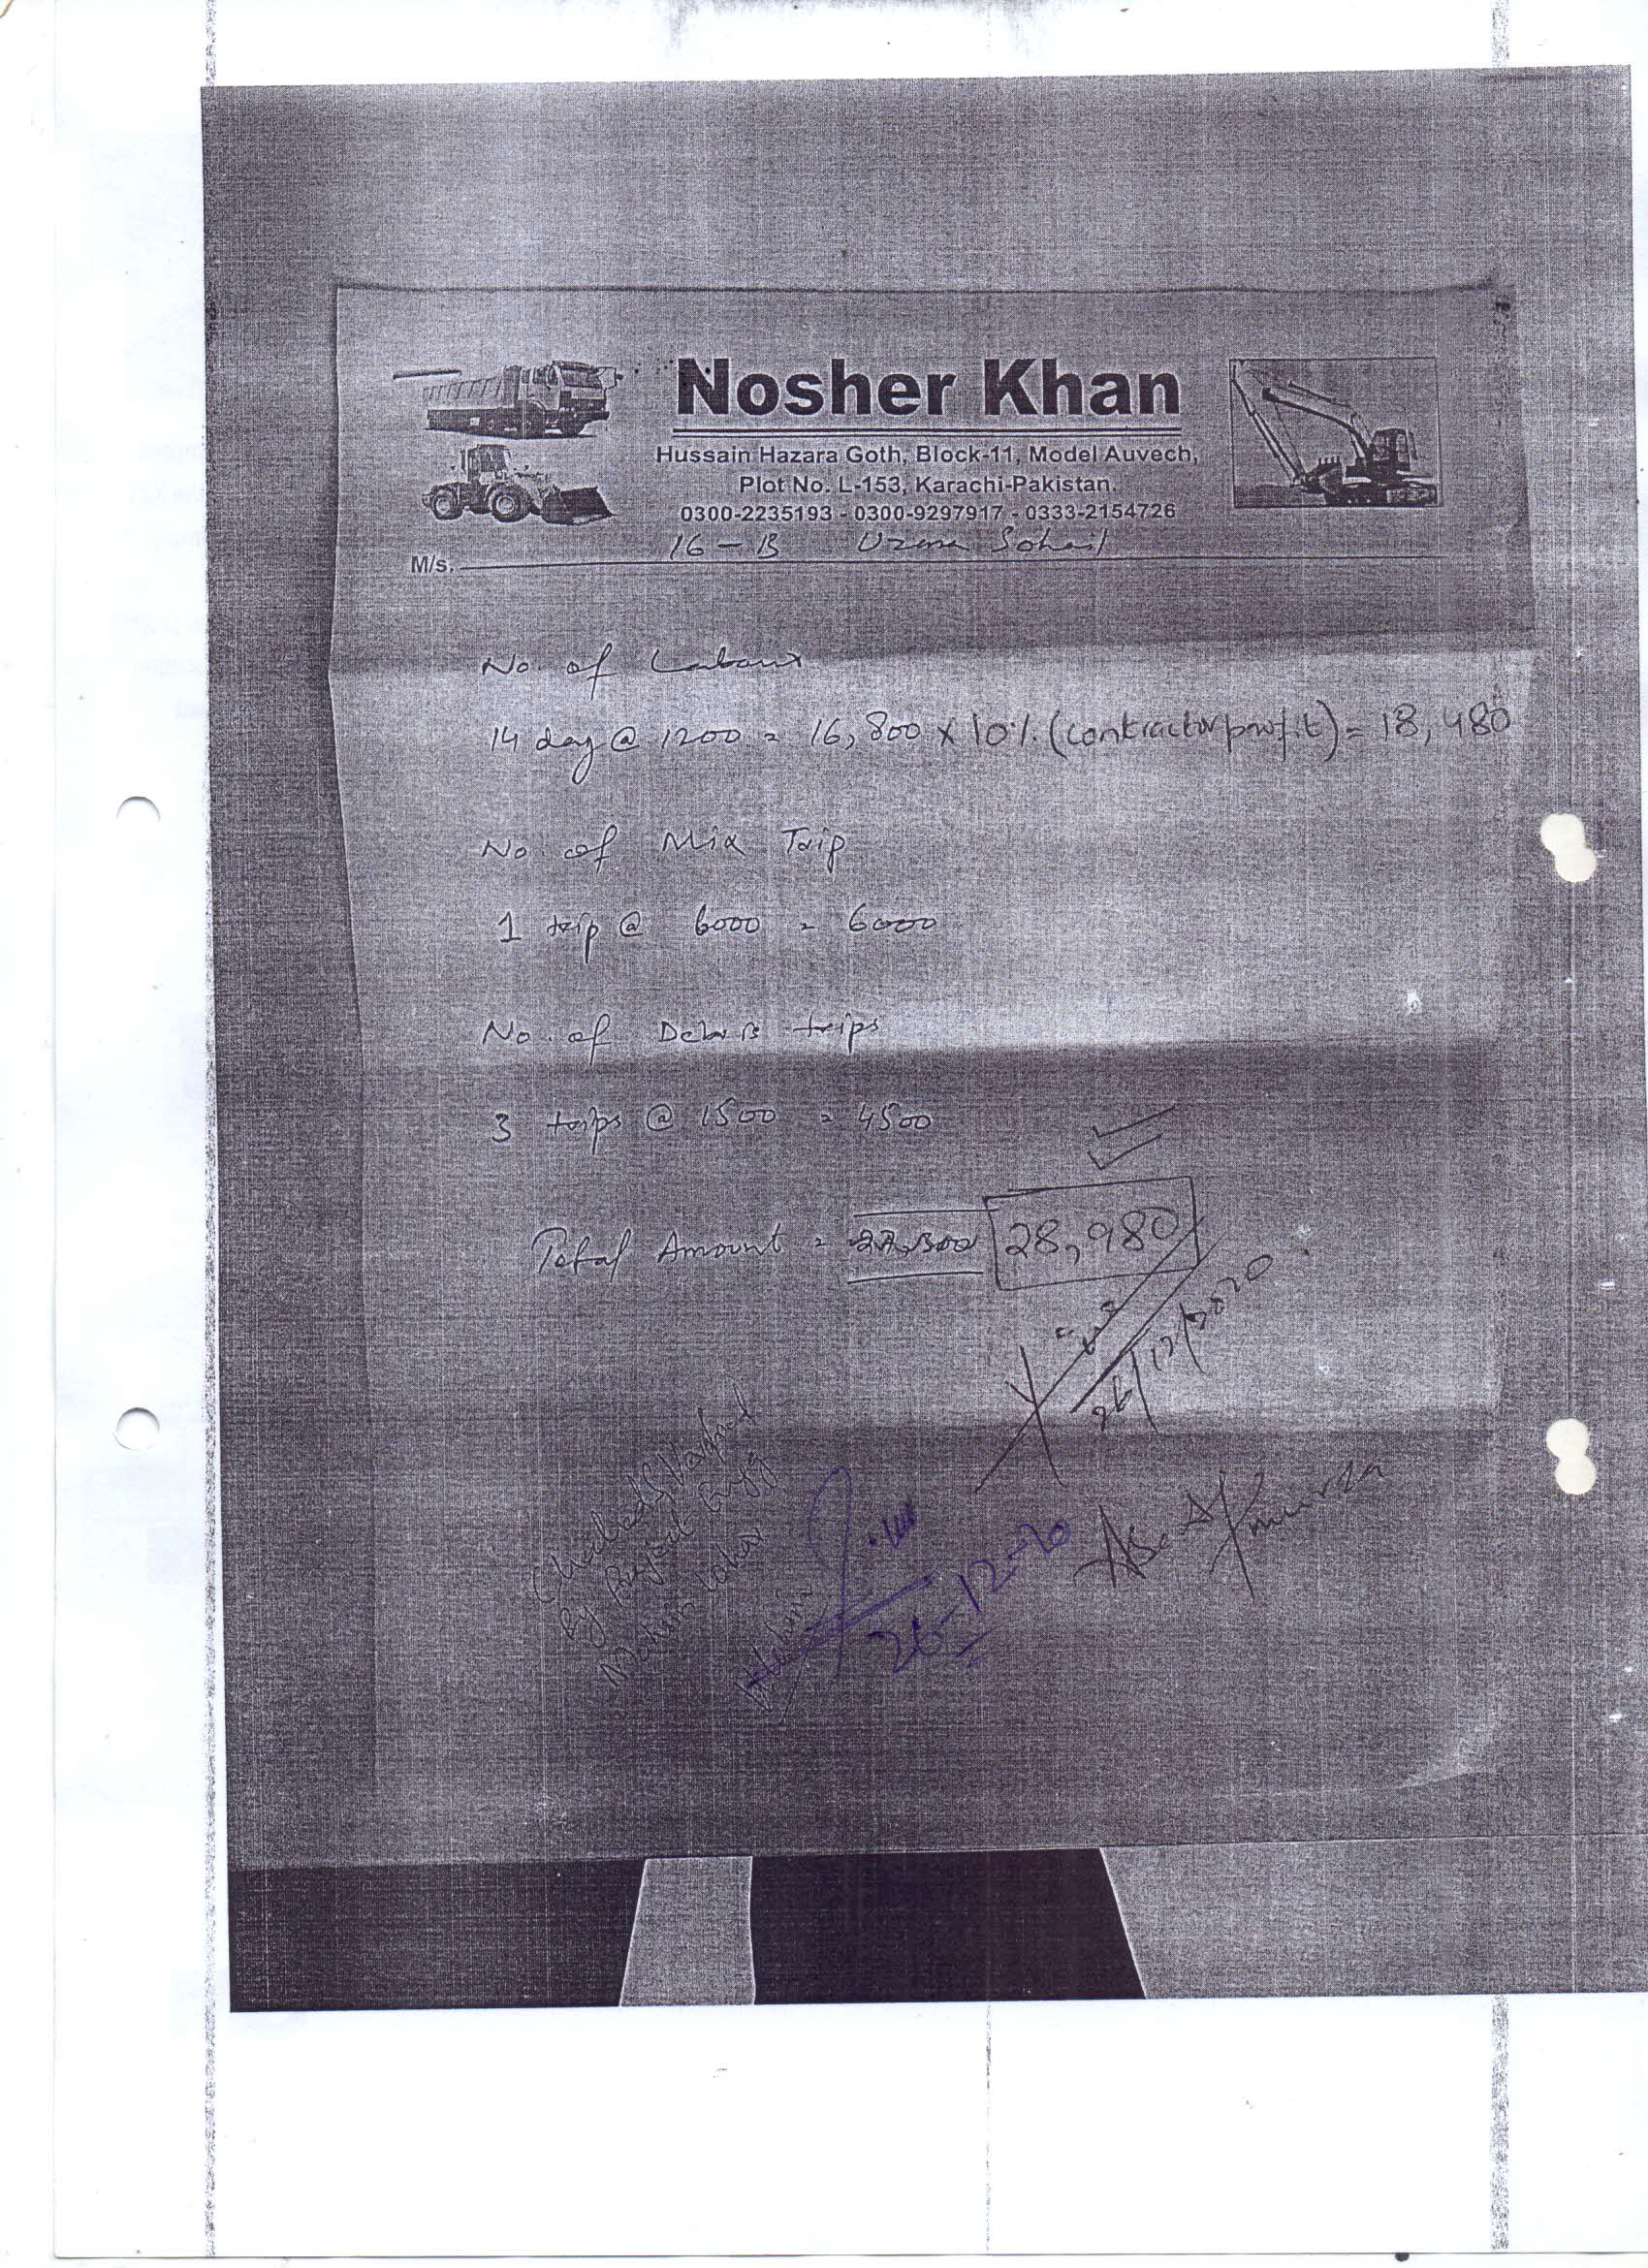 Nosher Khan
Hussain Hazara Goth, Block-11, Model Auvech,
Plot No. L-153, Karachi-Pakistan.
0300-2235193 - 0300-9297917 - 0333-2154726
M/s. 16-B Uzma Sohail
No. of Labour
14 day @ 1200 = 16,800 x 10% (contractor profit) = 18,480
No. of Mix Trip
1 trip @ 6000 = 6000
No. of Debris trips
3 trips @ 1500 = 4500
Total Amount = 27,300 28,980
26/12/2020
Checked & Verified
By Project Engg
26-12-20